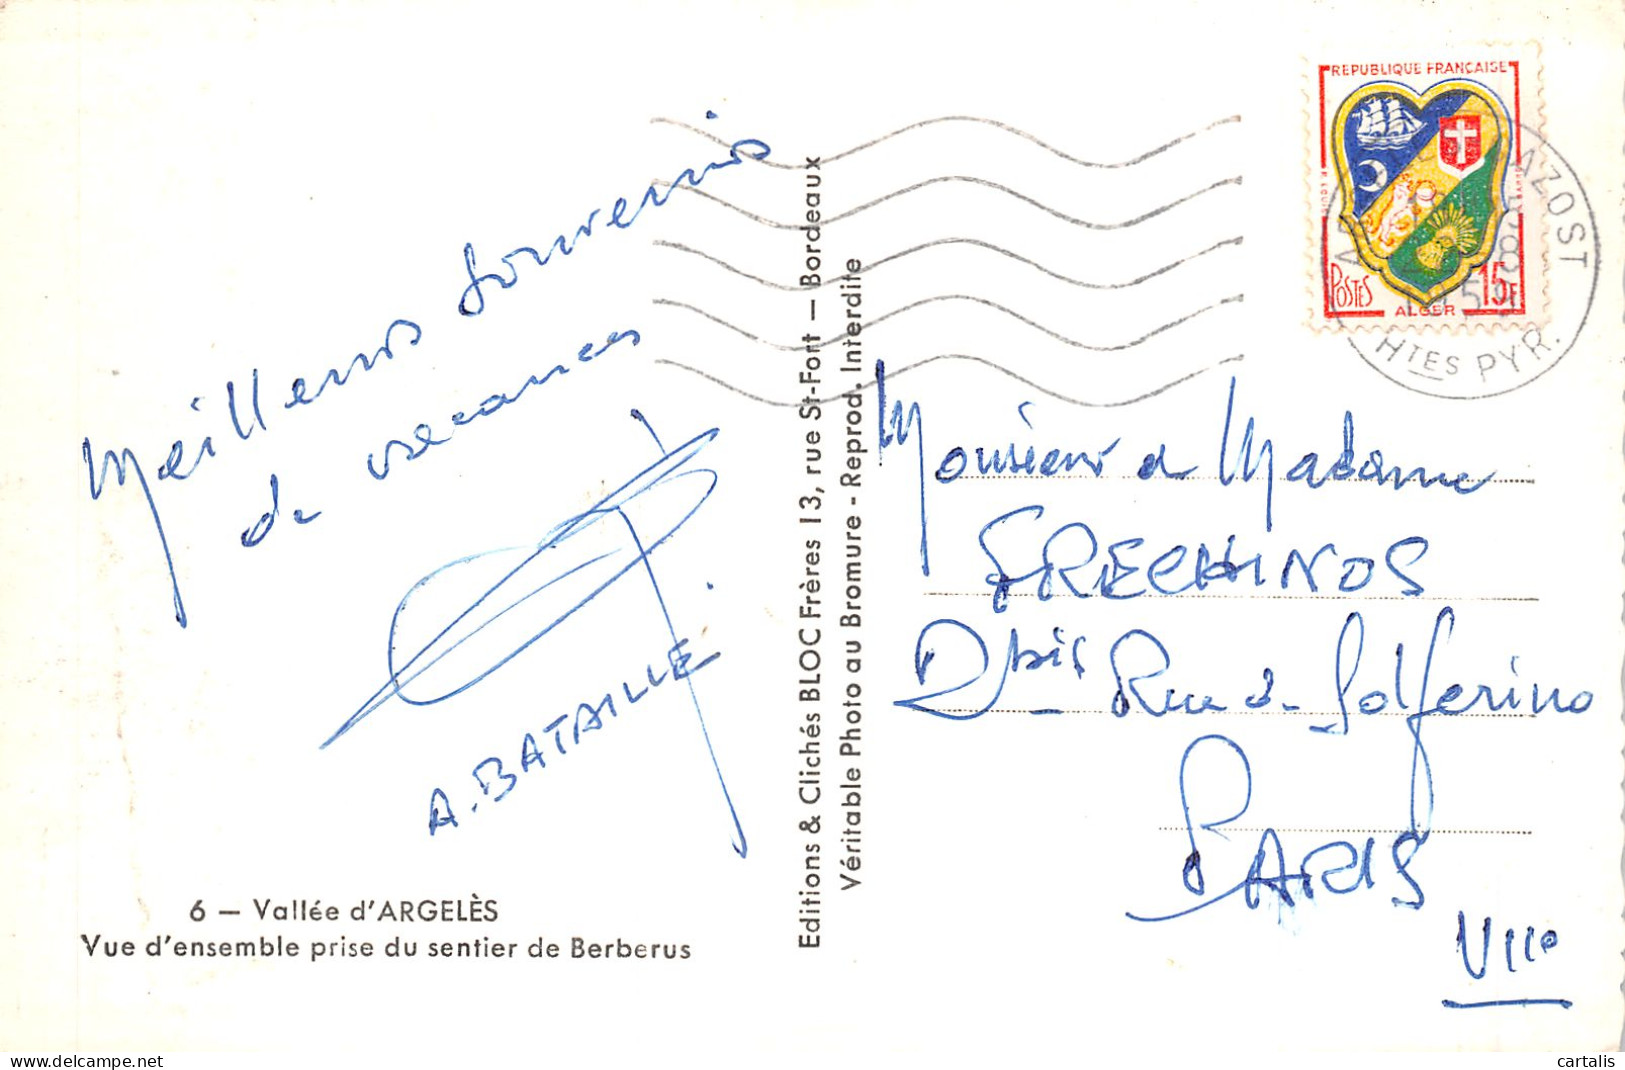 Meilleurs souvenirs
de vacances
A. BATAILLE.
6 — Vallée d'ARGELÈS
Vue d'ensemble prise du sentier de Berberus
Editions & Clichés BLOC Frères 13, rue St-Fort — Bordeaux
Véritable Photo au Bromure - Reprod. Interdite
REPUBLIQUE FRANÇAISE
POSTES
15F
ALGER
AZOST
HTES PYR.
Monsieur et Madame
FRECHINOS
bis Rue de Solferino
PARIS
VIIe
cartalis